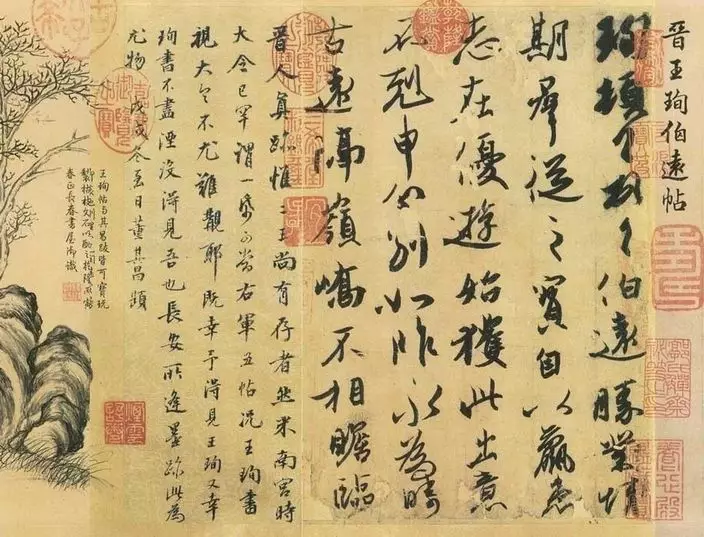 晉王珣伯遠帖
珣頓首頓首伯遠勝業情
期群從之寶自以羸患
志在優遊始獲此出意
不剋申分別如昨永為疇
古遠隔嶺嶠不相瞻臨
晉人真跡惟二王尚有存者然米南宮時
大令已罕謂一紙可當右軍五帖況王珣書
視大令不尤難覯耶既幸予得見王珣又幸
珣書不盡湮沒得見吾也長安所逢墨跡此為
尤物戊戌冬至日董其昌題
王珣帖與其昌跋皆可寶玩
製枯枝文石以配之乾隆丙寅
春正長春書屋御識